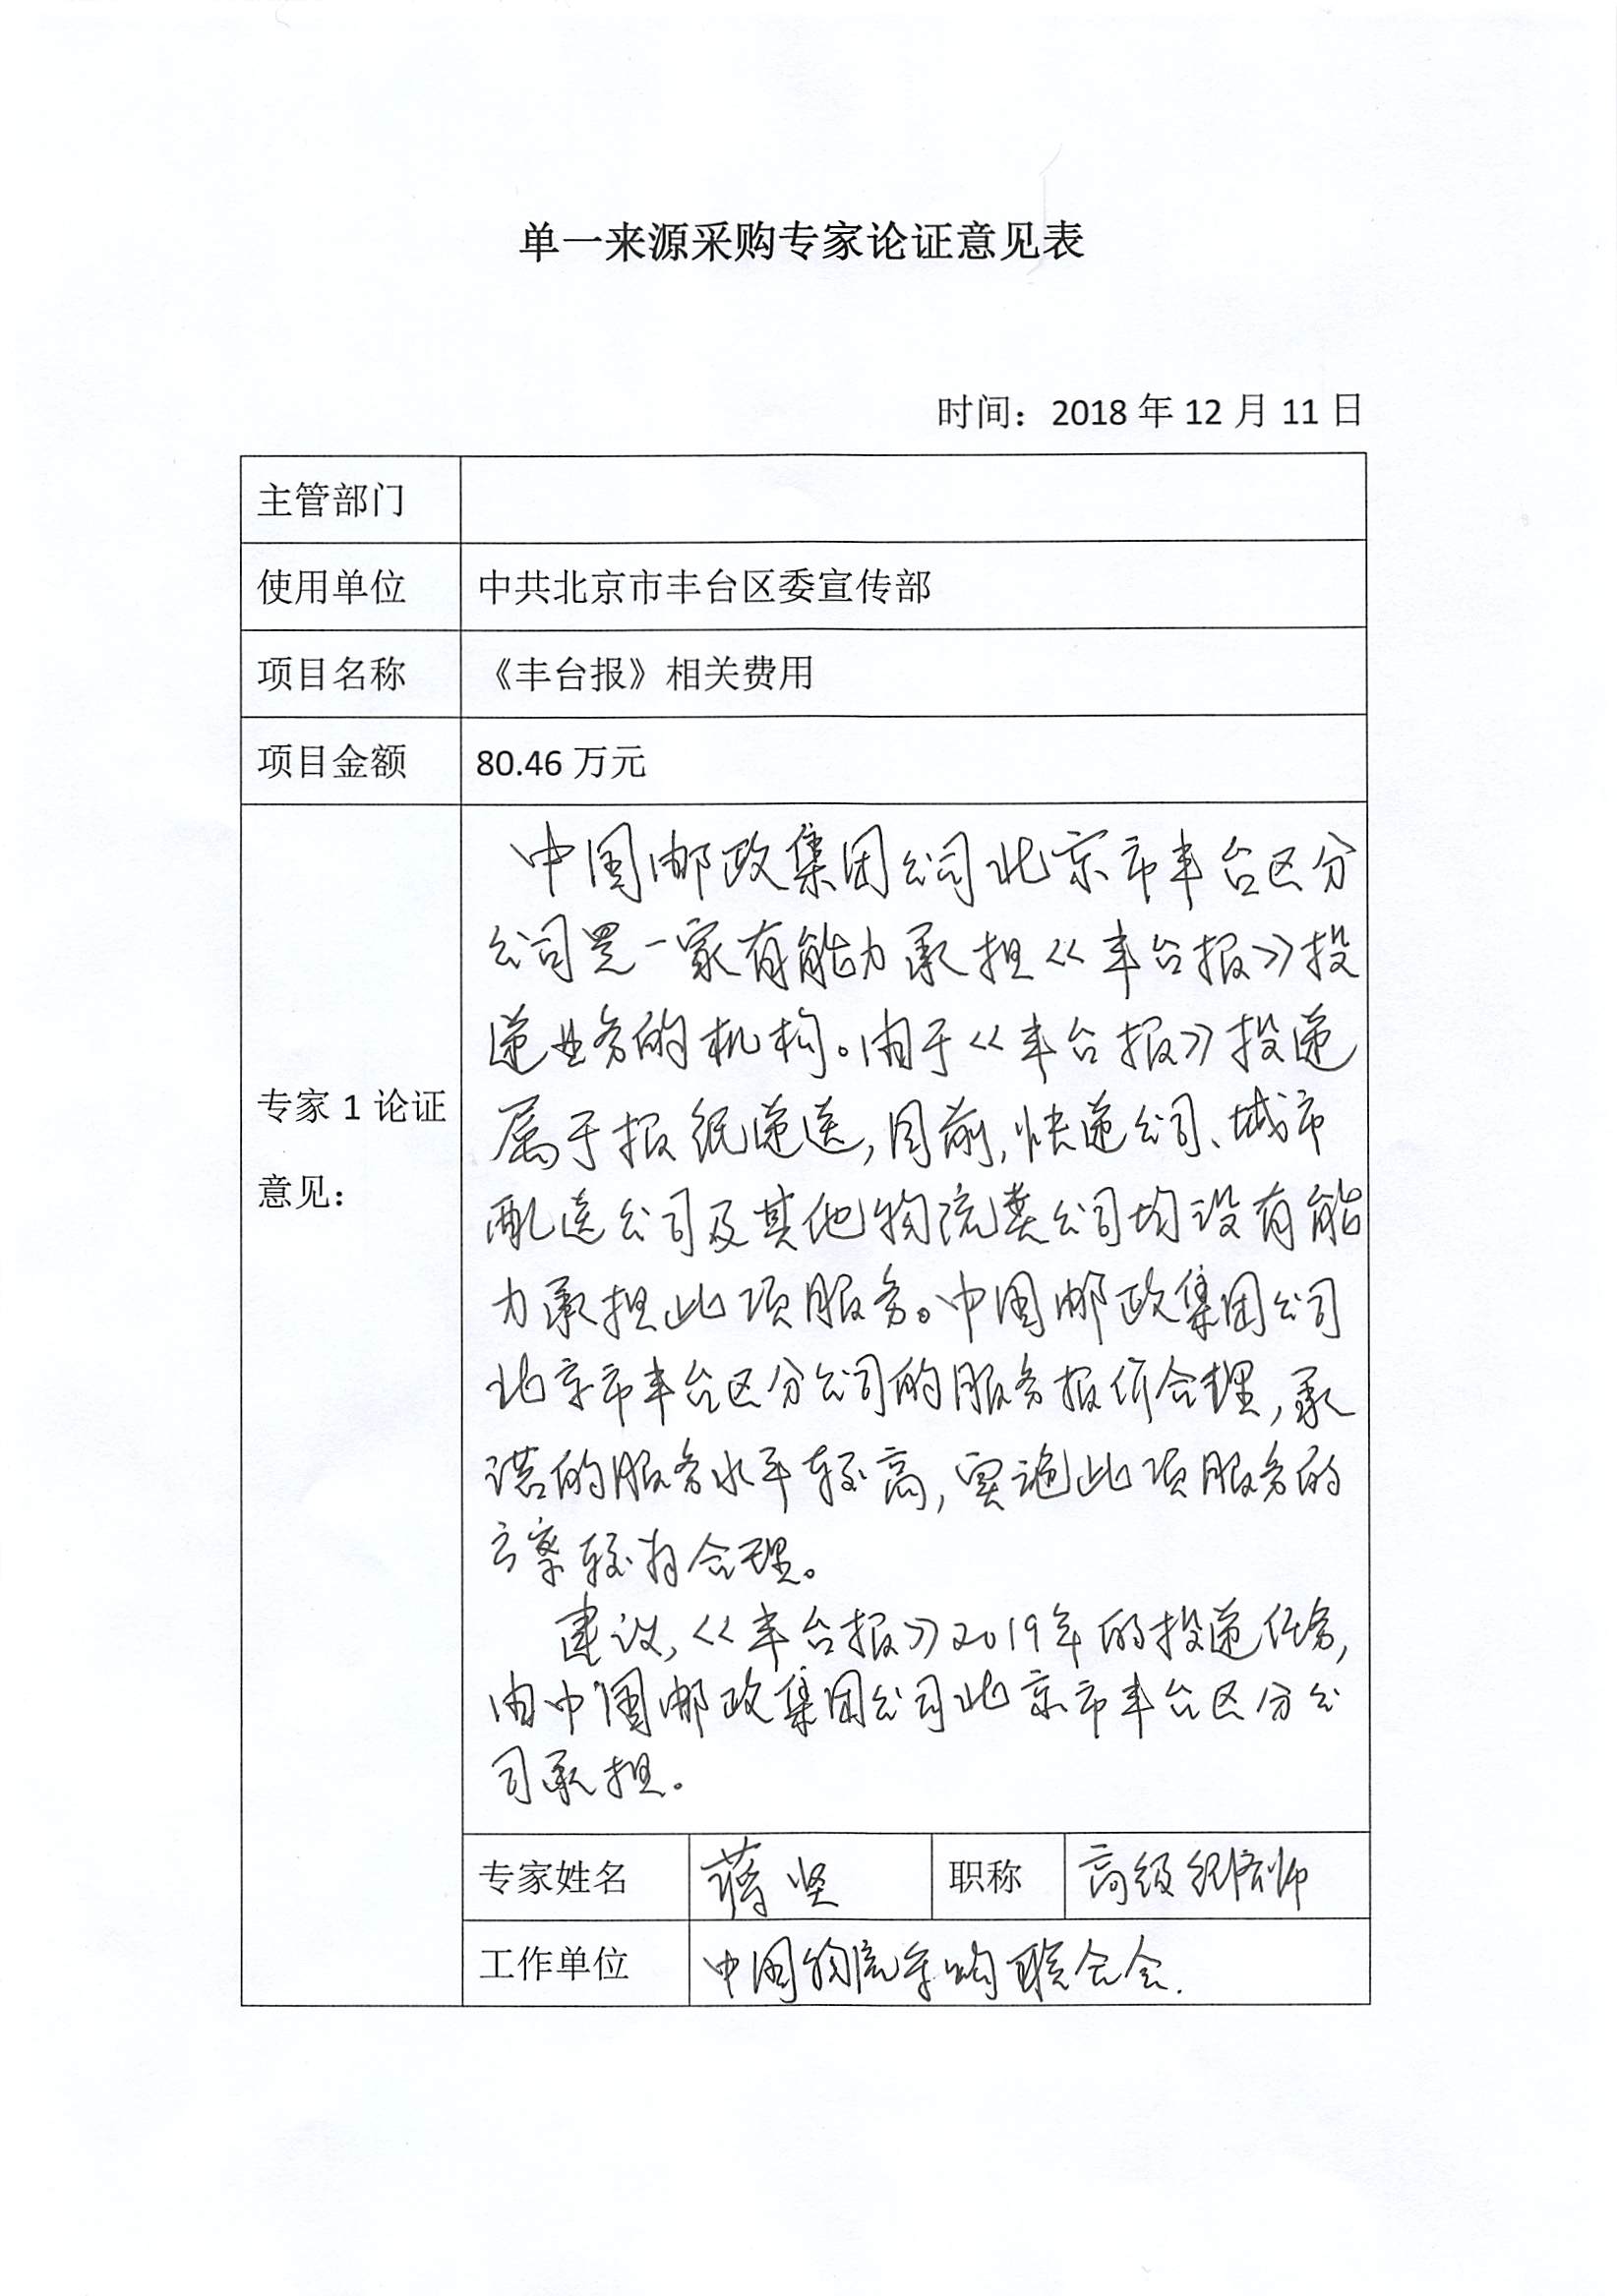 单一来源采购专家论证意见表
时间：2018 年 12 月 11 日
主管部门
使用单位 中共北京市丰台区委宣传部
项目名称 《丰台报》相关费用
项目金额 80.46 万元
专家 1 论证
意见：
中国邮政集团公司北京市丰台区分
公司是一家有能力承担《丰台报》投
递业务的机构。由于《丰台报》投递
属于报纸递送，目前，快递公司、城市
配送公司及其他物流类公司均没有能
力承担此项服务。中国邮政集团公司
北京市丰台区分公司的服务报价合理，承
诺的服务水平较高，实施此项服务的
方案较为合理。
建议，《丰台报》2019年的投递任务，
由中国邮政集团公司北京市丰台区分公
司承担。
专家姓名 蒋坚 职称 高级经济师
工作单位 中国物流采购联合会.